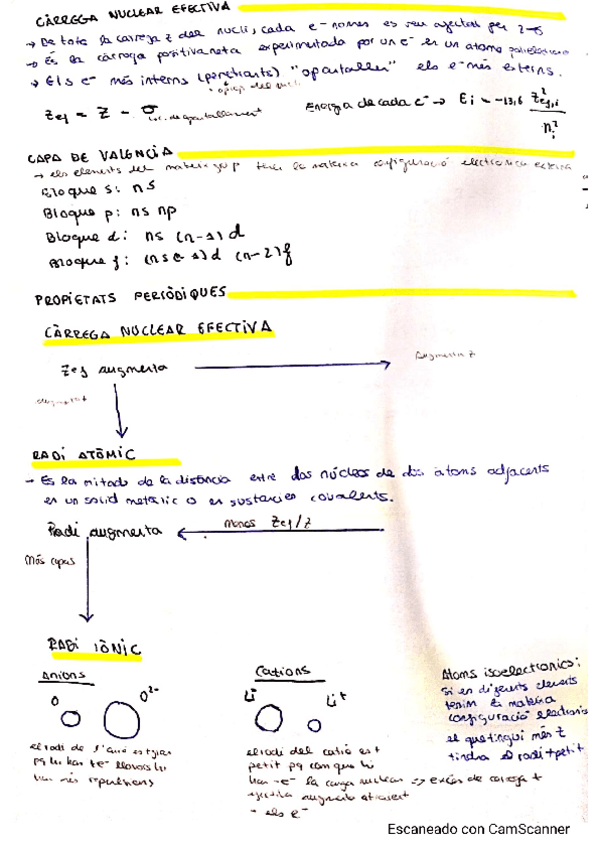 CÀRREGA NUCLEAR EFECTIVA
→ De tota la càrrega Z del nucli, cada e⁻ només es veu afectat per Z-σ
→ És la càrrega positiva neta experimentada por un e⁻ en un atomo polielectrónico
→ Els e⁻ més interns (penetrants) "apantallen" els e⁻ més externs.
Zef = Z - σ
Energia de cada e⁻ → Ei = -13,6 Z²ef,i / n²i
CAPA DE VALENCIA
→ els elements del mateix grup tenen la mateixa configuració electronica externa
Bloque s: ns
Bloque p: ns np
Bloque d: ns (n-1)d
Bloque f: (n-2)f
PROPIETATS PERIÒDIQUES
CÀRREGA NUCLEAR EFECTIVA
Zef augmenta
Augmenta Z
RADI ATÒMIC
- Es la mitad de la distància entre dos núcleos de dos àtoms adjacents
en un solid metàlic o en sustancies covalents.
Radi augmenta
menos Zef/Z
Más capas
RADI IÒNIC
Anions
O O²⁻
el radi de l'anió es + gran
pq hi han + e⁻ llavors hi
han més repulsions
Cations
Li Li⁺
el radi del catió es +
petit pq com que hi
han -e⁻ la carga nuclear => excés de carrega +
efectiva augmenta
- els e⁻
Atoms isoelectronics:
Si en diferents elements
tenim la mateixa
configuració electronica
el que tingui més Z
tindra el radi + petit
Escaneado con CamScanner